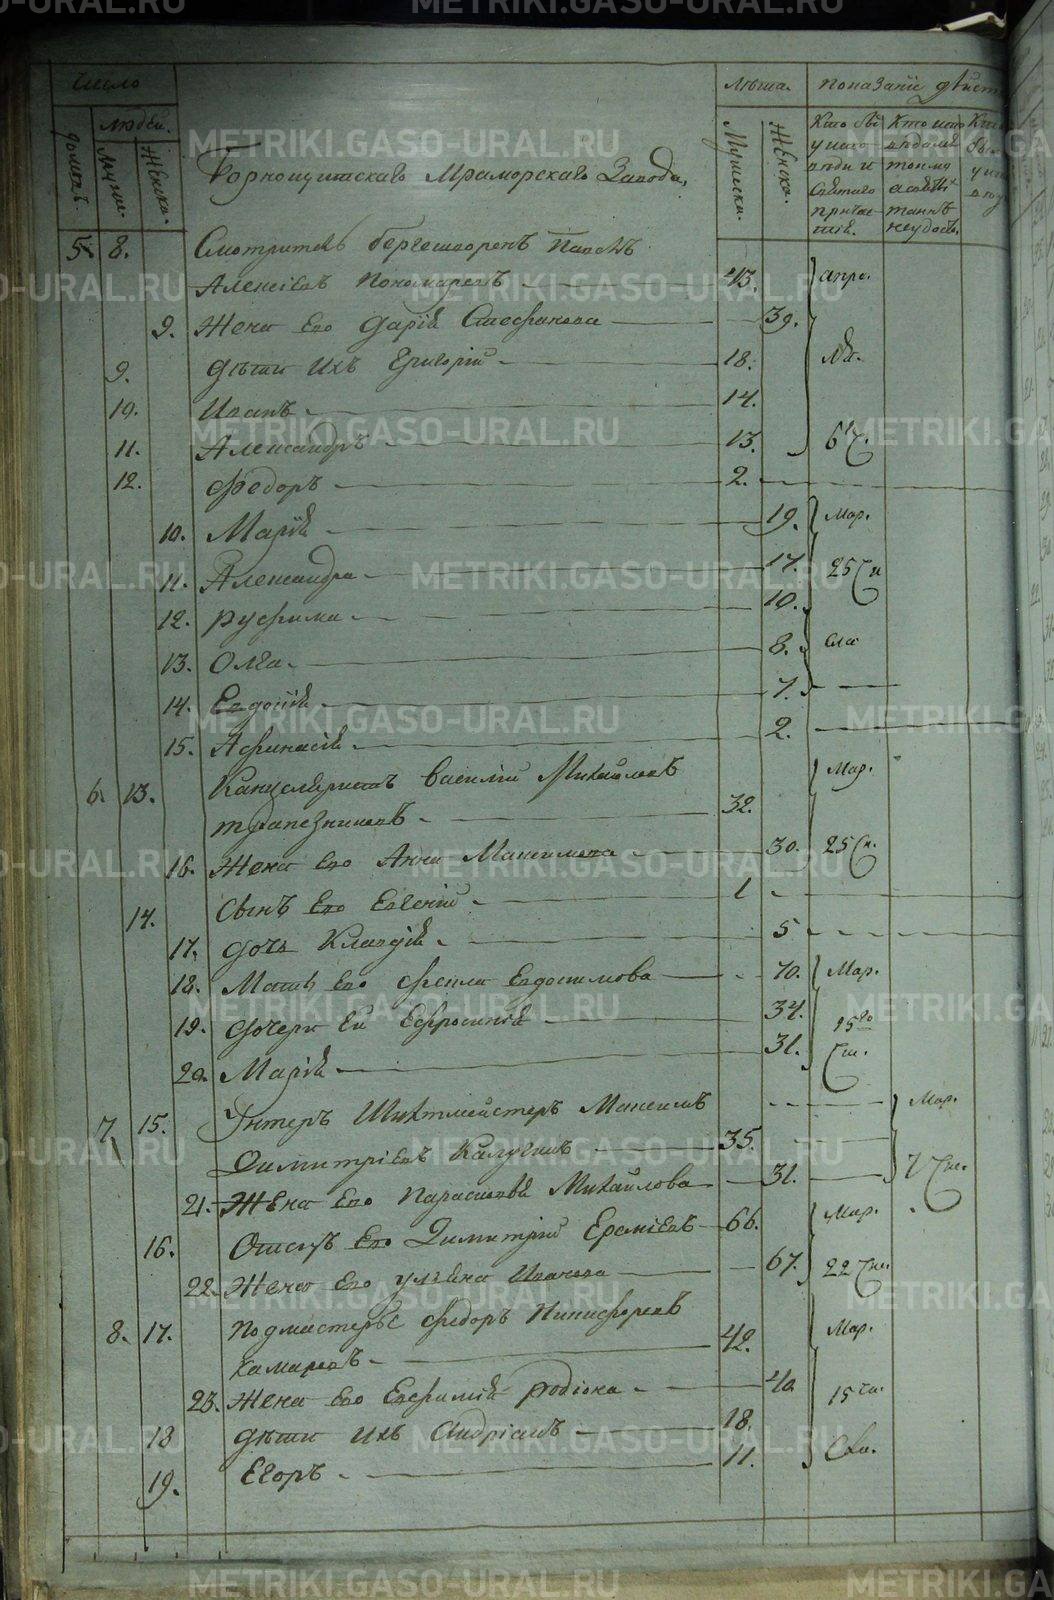 Число
Лѣта.
Показаніи дѣйст
домовъ.
Людей.
Мужи.
Женска.
Мужески.
Женска.
Кто бы
у испо-
вѣди и
Святаго
причас-
тія.
Кто испо
вѣдалс
токмо
а святы
таинъ
неудост.
Горнощитскаго Мраморскаго Завода,
5. 8. Смотритель бергешворенъ Павелъ
Алексіевъ Пономаревъ 43. апре.
9. Жена Его Дарія Стефанова 39.
9. Дѣти ихъ Григорій 18.
10. Иванъ 14.
11. Александръ 13. 6
12. Федоръ 2.
10. Марія 19. Мар.
11. Александра 17. 25
12. Руфима 10.
13. Олга 8.
14. Евдокія 7.
15. Афанасія 2.
6. 13. Канцеляристъ Василій Михайловъ Мар.
трапезниковъ 32.
16. Жена Его Анна Максимова 30. 25
14. Сынъ Его Евгеній 1
17. Дочь Клавдія 5
18. Мать Его Фекла Евдокимова 70. Мар.
19. Дочери Ея Ефросинія 34. 15го
20. Марія 31.
7. 15. Унтеръ Шихтмейстеръ Максимъ Мар.
Димитріевъ Калугинъ 35.
21. Жена Его Параскевія Михайлова 31. 7
16. Отецъ Его Димитрій 66. Мар.
22. Жена Его Ульяна Иванова 67. 22
8. 17. Подмастерье Федоръ Никифоровъ Мар.
Камаровъ 42.
23. Жена Его Евфимія Родіона 40 15
18 Дѣти ихъ Андріанъ 18.
19. Егоръ 11.
METRIKI.GASO-URAL.RU